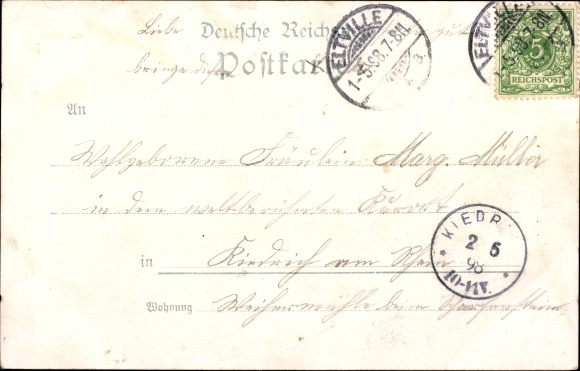 Liebe Deutsche Reichs
bringe
Postkarte
ELTVILLE
1-5.98.7-8N.
ELTVILLE
1-5.98.7-8N.
5
REICHSPOST
An
Wohlgeborene Fräulein Marg. Müller
in dem weltberühmten Kurort
KIEDR
2 5
98
10-11V.
in Kiedrich am Rhein
Wohnung Weihermühle beim Scharfenstein